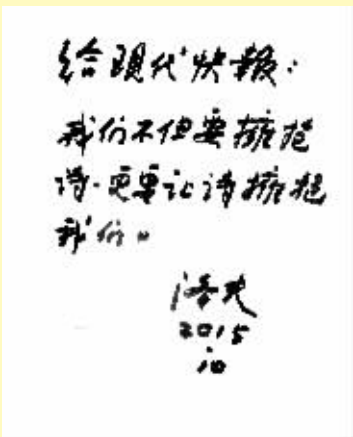 给现代快报:
我们不但要拥抱
诗.更要让诗拥抱
我们。
洛夫
2015
10